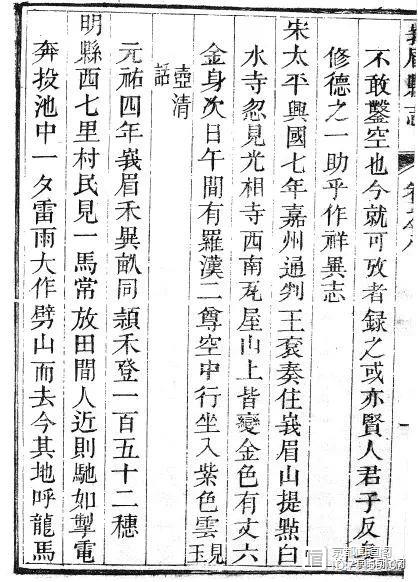 峩眉縣志
卷之八
不敢鑿空也今就可攷者録之或亦賢人君子反
修德之一助乎作祥異志
宋太平興國七年嘉州通判王衮奏住峩眉山提點白
水寺忽見光相寺西南瓦屋山上皆變金色有丈六
金身次日午間有羅漢二尊空中行坐入紫色雲見玉
壺清話
元祐四年峩眉禾異畝同頴禾登一百五十二穗
明縣西七里村民見一馬常放田間人近則馳如掣電
奔投池中一夕雷雨大作劈山而去今其地呼龍馬